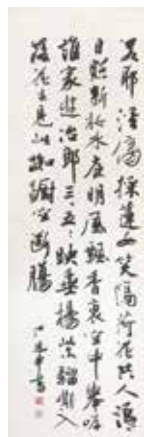 若耶溪傍採蓮女笑隔荷花共人語
日照新妝水底明風飄香空中舉岸
誰家遊冶郎三々五々映垂楊紫騮嘶入
落花去見此踟躕空斷腸